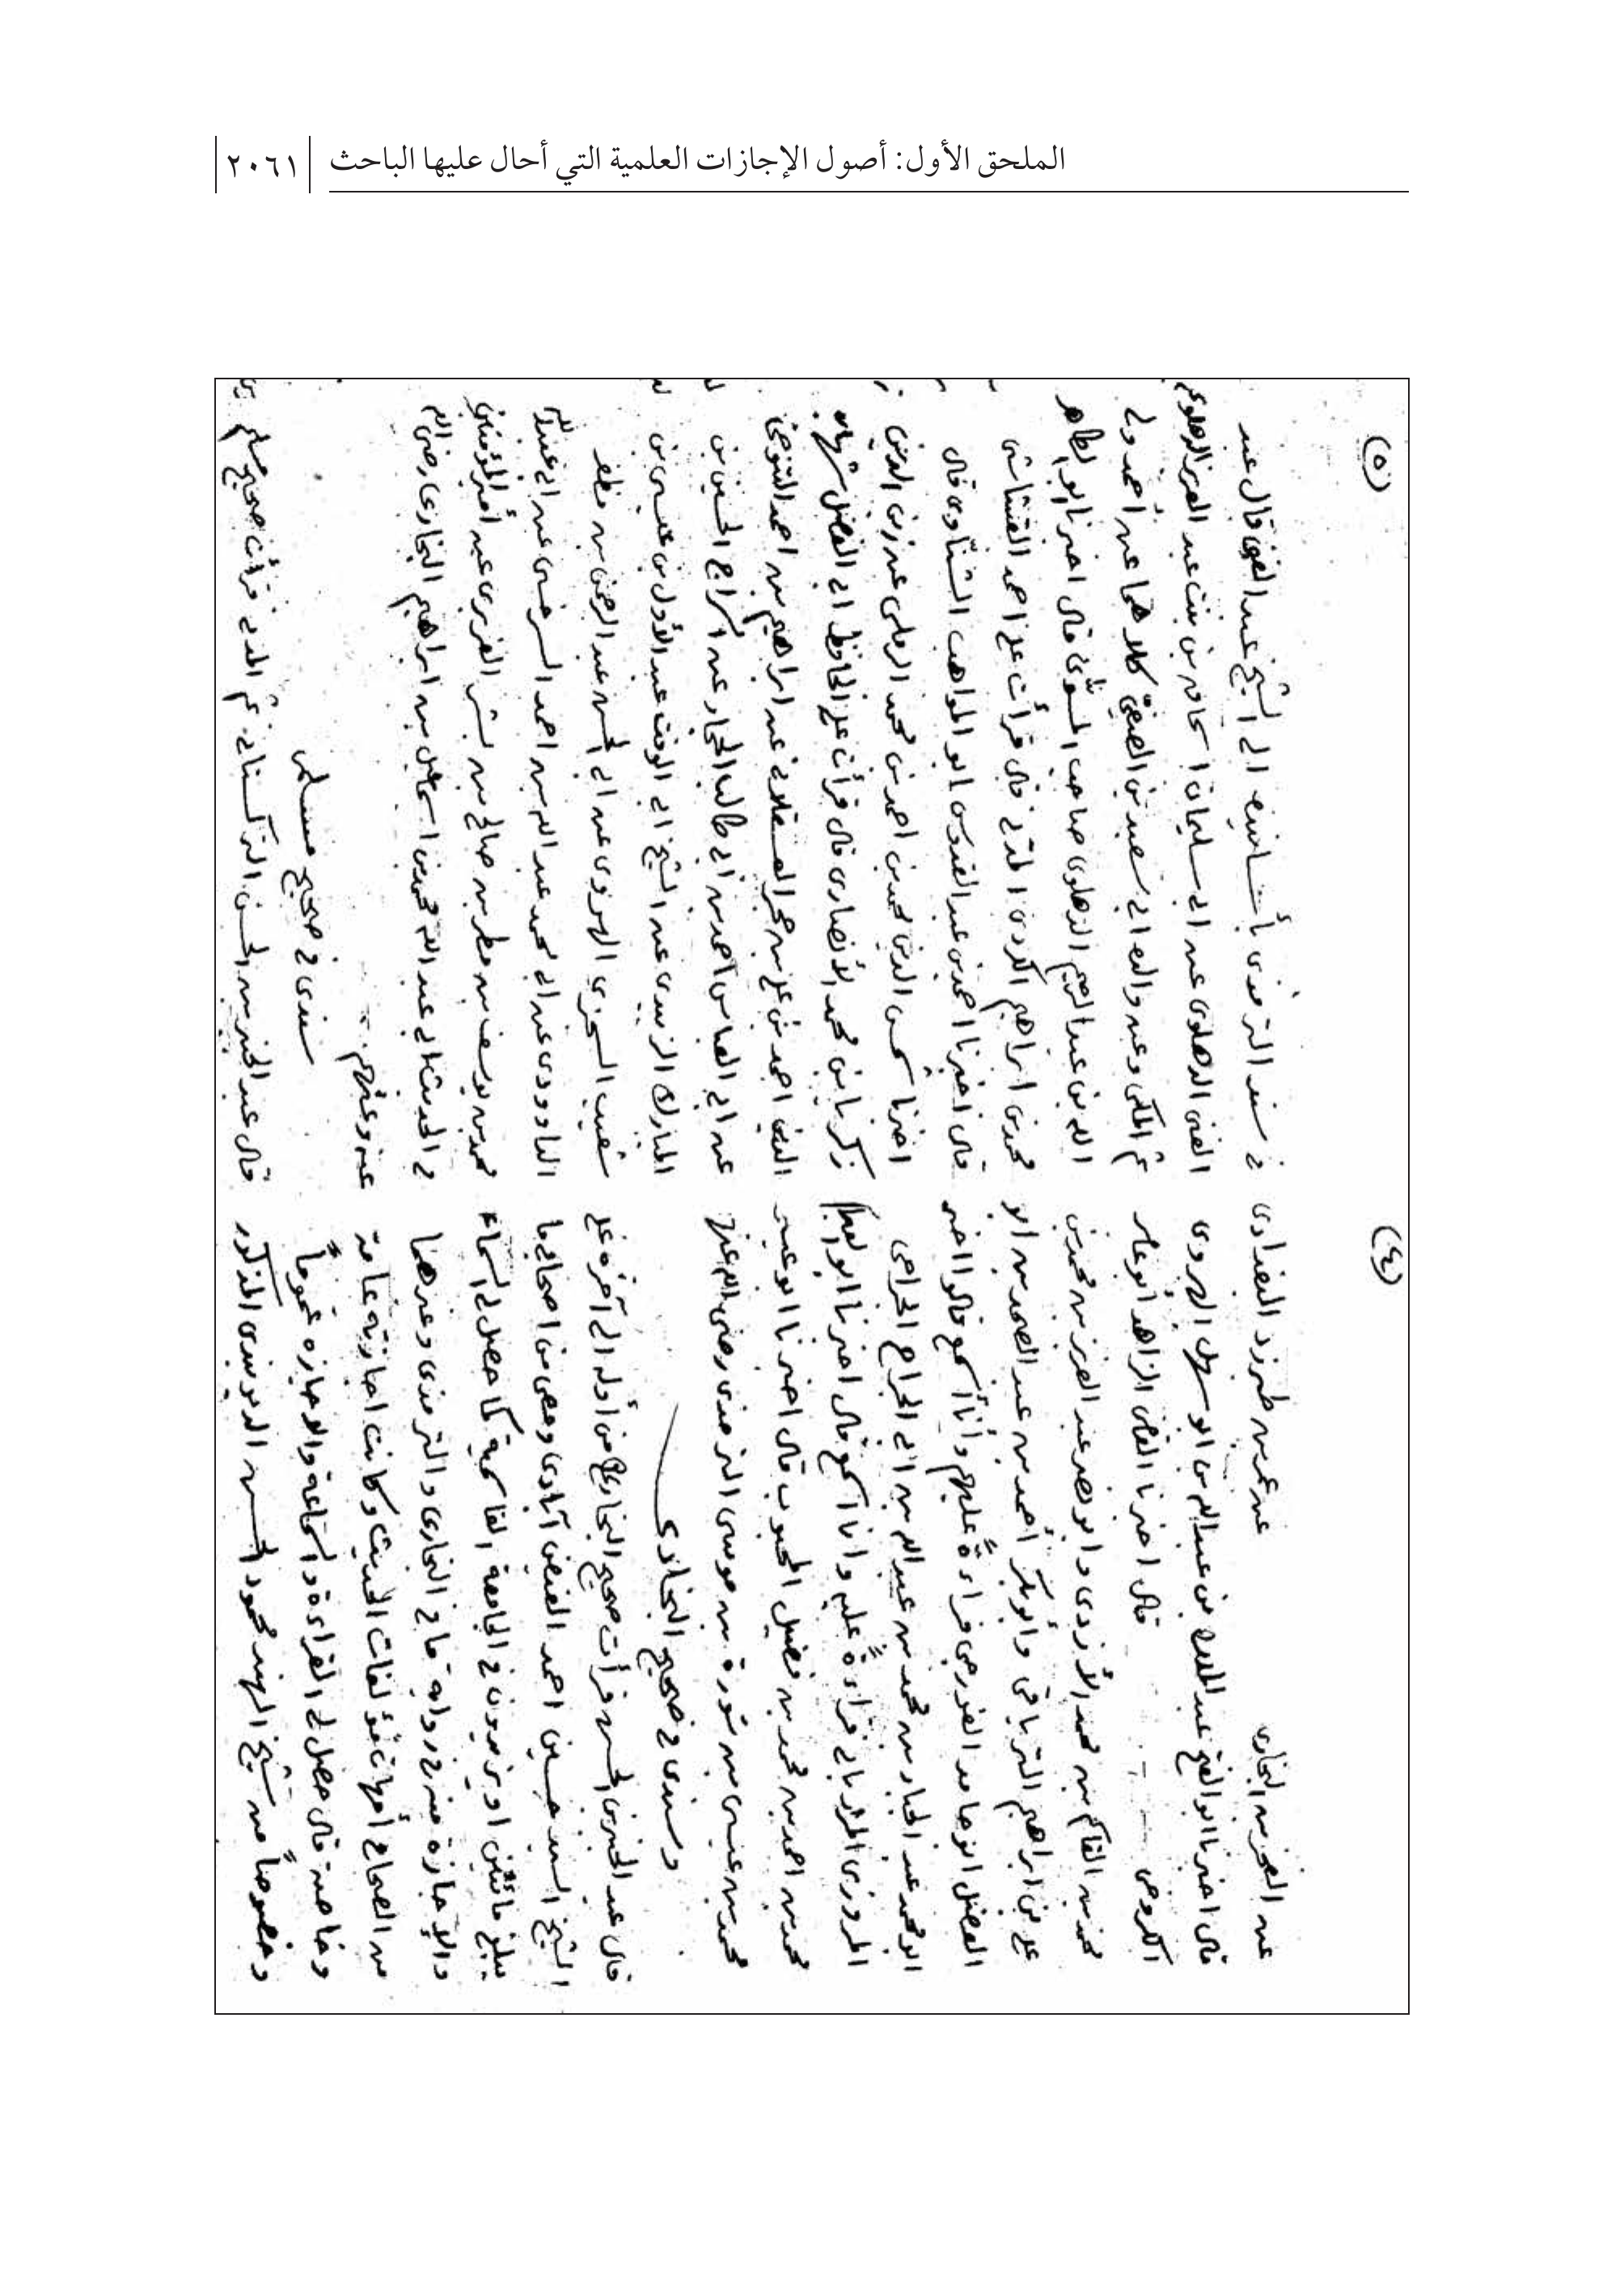 الملحق الأول: أصول الإجازات العلمية التي أحال عليها الباحث
٢٠٦١
(٤)
عن عمر بن طبرزد البغدادى
عن الفخر بن البخارى
قال اخبرنا ابو الفتح عبد الملك بن عبد الله بن ابو سهل الهروى
الكروخى
قال اخبرنا القاضى الزاهد أبو عامر
محمود بن القاسم بن محمد الأزدى وابو نصر عبد العزيز بن محمد بن
على بن ابراهيم الترياقى وأبو بكر أحمد بن عبد الصمد بن ابو
الفضل ابو حامد الغورجى قراءةً عليهم وأنا أسمع قالوا اخبرنا
ابو محمد عبد الجبار بن محمد بن عبد الله بن ابى الجراح الجراحى
المروزى المرزبانى قراءةً عليه وانا اسمع قال اخبرنا ابو العباس
محمد بن احمد بن محمد بن فضيل المحبوب قال اخبرنا ابو عيسى
محمد بن عيسى بن سورة بن موسى الترمذى رضى الله عنه
وسندى فى صحيح البخارى
قال عبد الخبير بن الحسن قرأت صحيح البخارى من أوله الى آخره على
الشيخ السيد حسين احمد الفيض آبادى ومعى من اصحابى ما
يبلغ مائتين او يزيدون فى الجامعة القاسمية كما حصل لى السماع
والإجازة منه فى رواية ما فى البخارى والترمذى وغيرهما
من الصحاح أمهات مؤلفات الحديث وكانت اجازته عامة
وخاصة قال حصل لى القراءة والسماعة والاجازة عموماً
وخصوصاً من شيخ الهند محمود الحسن الديوبندى المذكور
(٥)
فى سند الترمذى بأسانيده الى الشيخ عبد الغنى قال عبد
الغنى الدهلوى عن ابى سليمان اسحاق بن بنت عبد العزيز الدهلوى
ثم المكى وعن والده ابى سعيد بن الصفىّ كلاهما عن أحمد ولى
الله بن عبد الرحيم الدهلوى صاحب المسوّى قال اخبرنا ابو الطاهر
محمد بن ابراهيم الكردى المدنى قال قرأت على احمد القشاشى
قال اخبرنا احمد بن عبد القدوس ابو المواهب الشنّاوى قال
اخبرنا شمس الدين محمد بن احمد بن محمد الرملى عن زين الدين
زكريا بن محمد الأنصارى قال قرأت على الحافظ ابى الفضل شهاب
الدين احمد بن على بن حجر العسقلانى عن ابراهيم بن احمد التنوخى
عن ابى العباس احمد بن أبى طالب الحجار عن السراج الحسين بن
المبارك الزبيدى عن الشيخ ابى الوقت عبد الأول بن عيسى بن
شعيب السجزى الهروى عن ابى الحسن عبد الرحمن بن مظفر
الداوودى عن ابى محمد عبد الله بن احمد السرخسى عن ابى عبد الله
محمد بن يوسف بن مطر بن صالح بن بشر الفربرى عن أمير المؤمنين
فى الحديث ابى عبد الله محمد بن اسماعيل بن ابراهيم البخارى رضى الله
عنه وعنهم
سندى فى صحيح مسلم
قال عبد الخبير بن الحسن التركستانى ثم المدنى قرأت صحيح مسلم